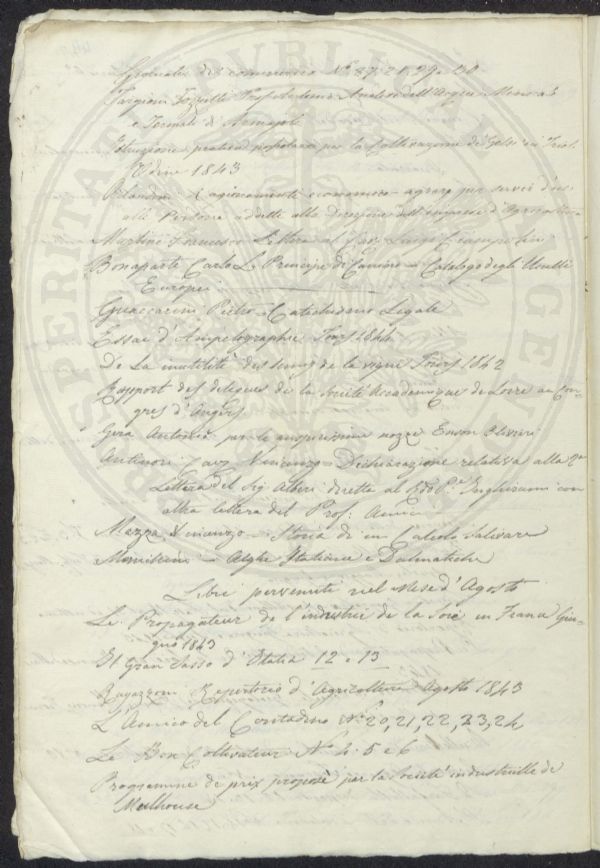 Giornale del commercio Nº 27. 28. 29 e 30
Targioni Tozzetti Prof Antonio Analisi dell'Acque
e Termali di
Istruzione pratica per la Coltivazione de Gelsi in Friul
Udine 1843
Ragionamenti economico agrarj per servir d'
alle Persone addette alla Direzione dell'imprese d'Agricoltura
Martini Francesco Lettera al Luigi
Bonaparte Carlo L. Principe di Canino - Catalogo degli Uccelli
Europei
Guaccarini Pietro - Catechismo Legale
Essai d'Ampelographie Tours 1844
De la inutilité des de la vigne Tours 1842
Rapport des delegues de la Société Accademique de Loire au Con-
gres d'Angers
Gera Antonio per le auspicissime nozze Oliveri
Antinori Vincenzo - Dichiarazione relativa alla 2ª
Lettera del Sig Alberi diretta al Inghirami con
altra lettera del Prof: Amici
Mazza Vincenzo - Storia di un Calcolo Salivare
Meneghini - Alghe Italiane e Dalmatiche
Libri pervenuti nel Mese d'Agosto
Le Propagateur de l'industrie de la Soie en France Giu-
gno 1843
Il Gran Sasso d'Italia 12 e 13
Ragazzoni Repertorio d'Agricoltura Agosto 1843
L'Amico del Contadino Nº 20, 21, 22, 23, 24
Le Bon Coltivateur Nº 4. 5 e 6
Programme de prix proposé par la Société industrielle de
Mulhouse
PVBLICA